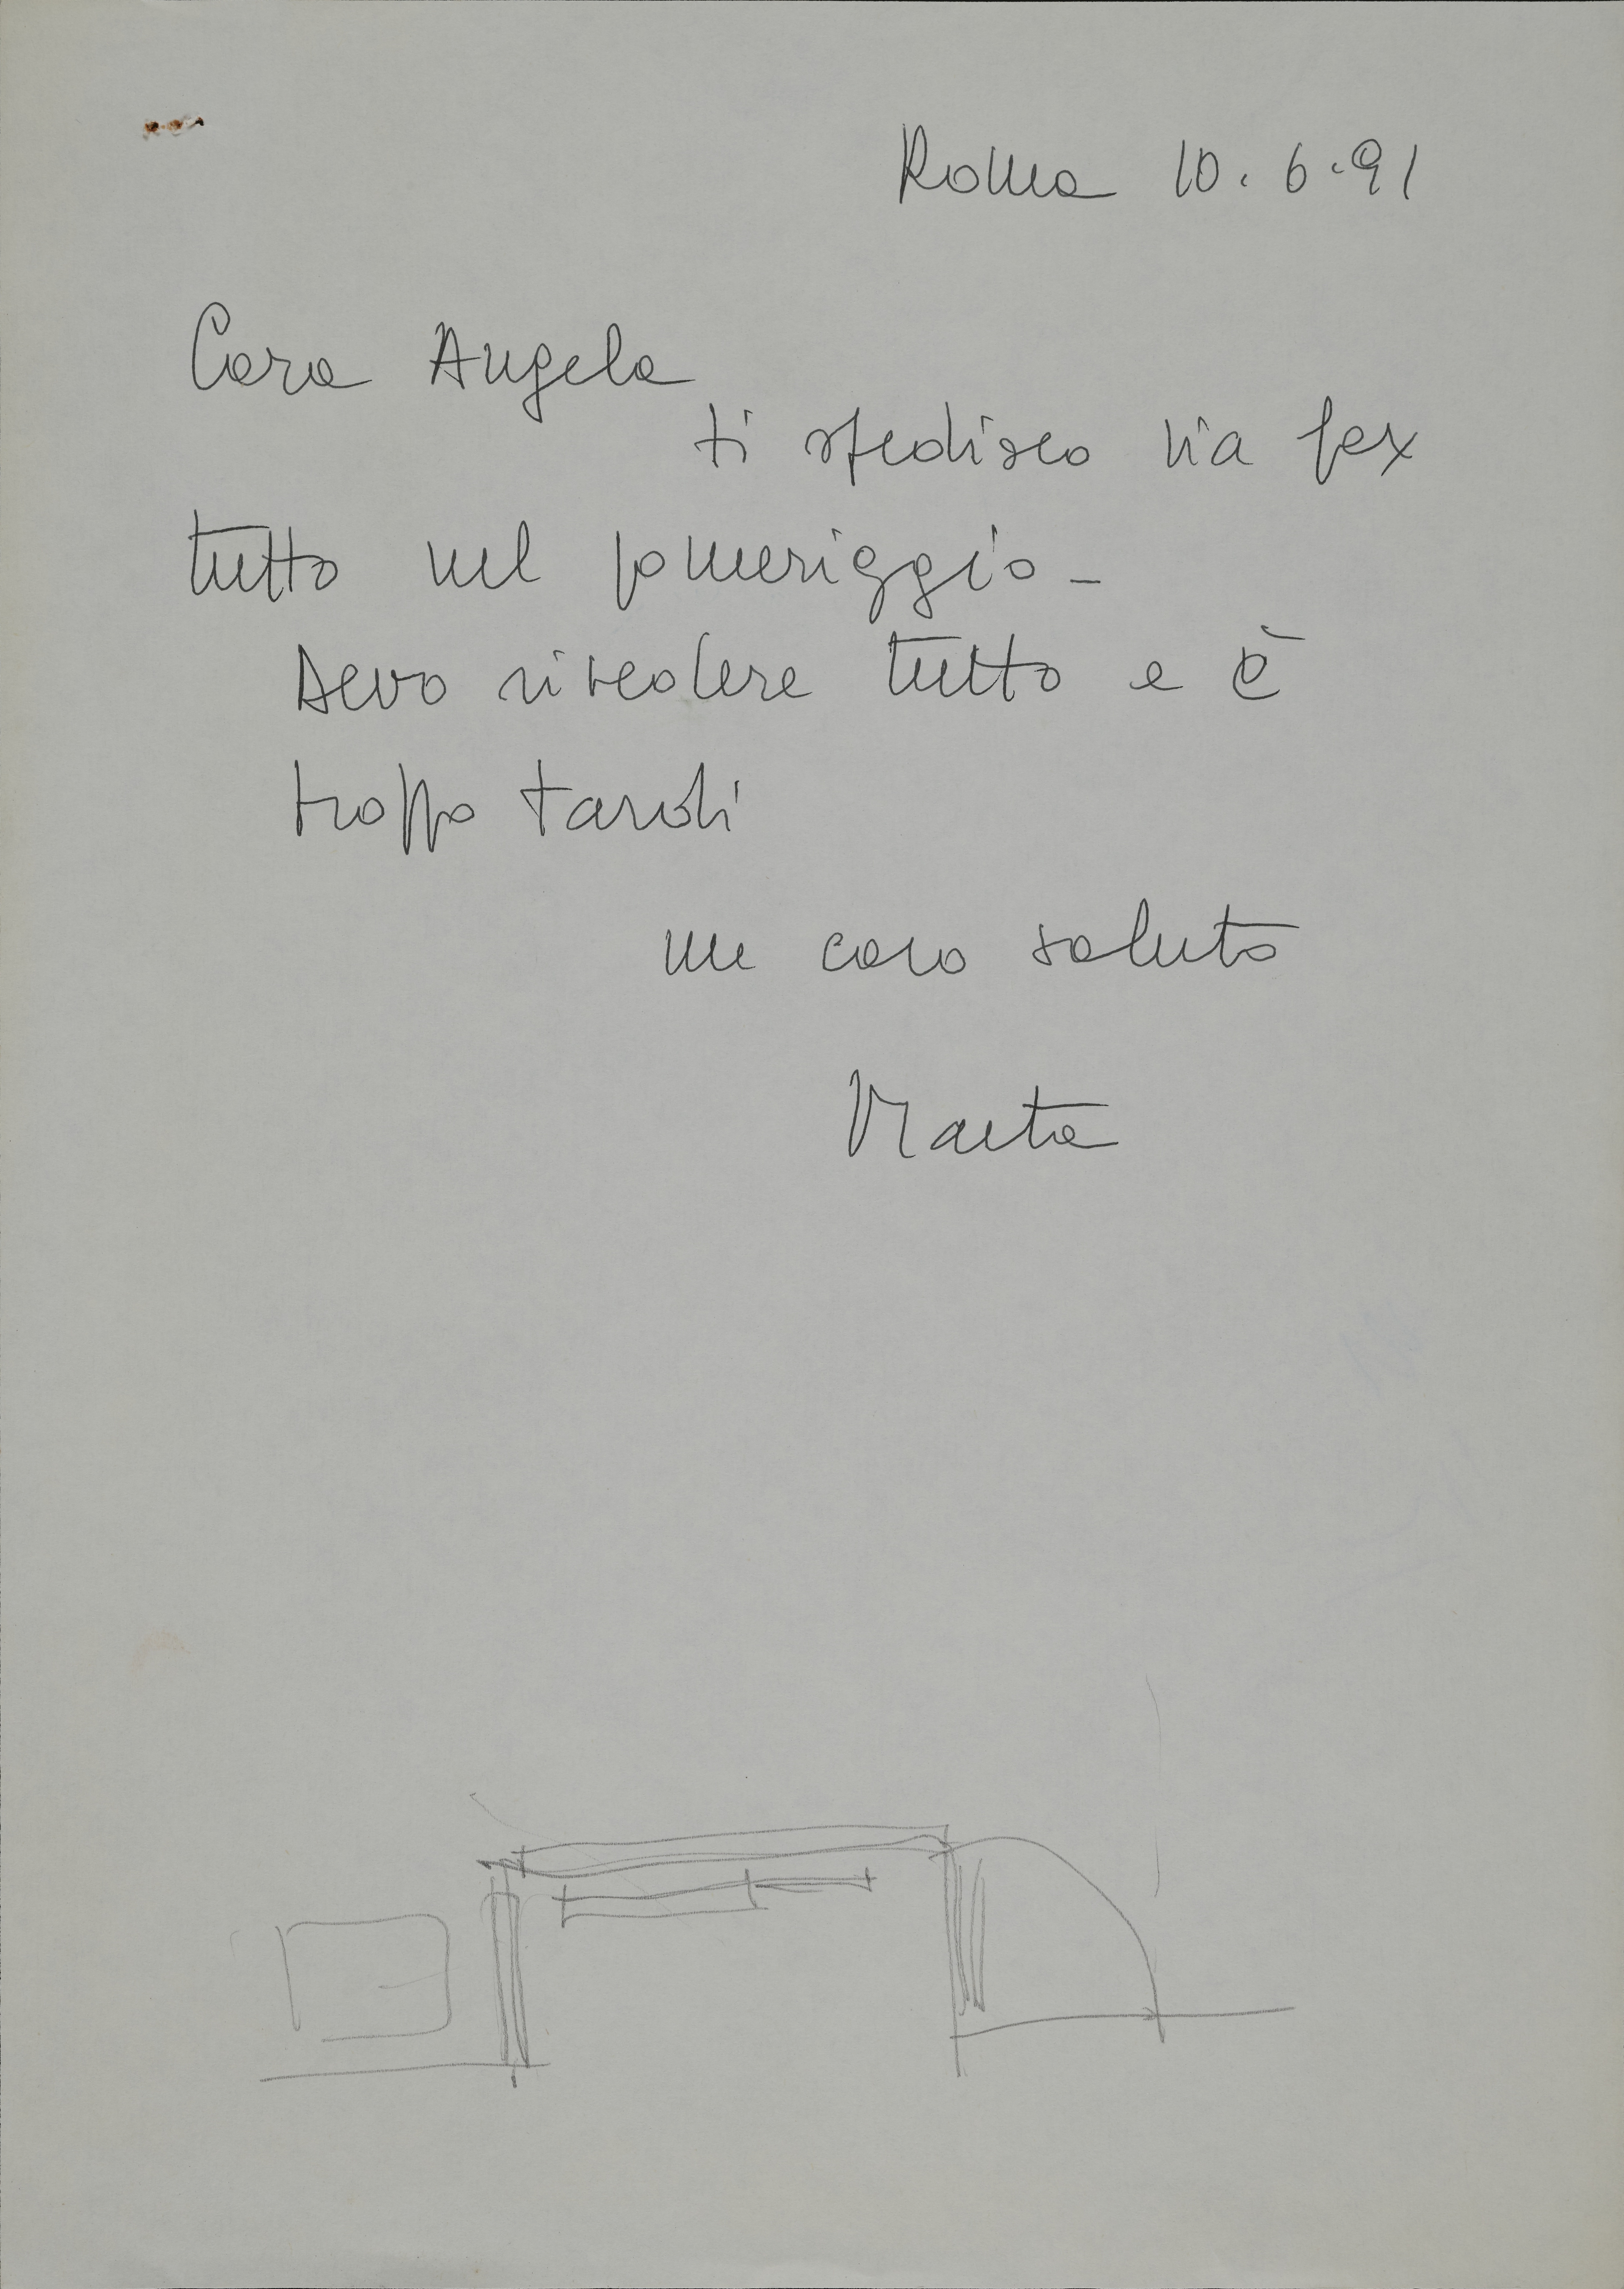 Roma 10.6.91
Cara Angela
ti spedisco via fax
tutto nel pomeriggio -
Devo rivedere tutto e è
troppo tardi
un caro saluto
Marta